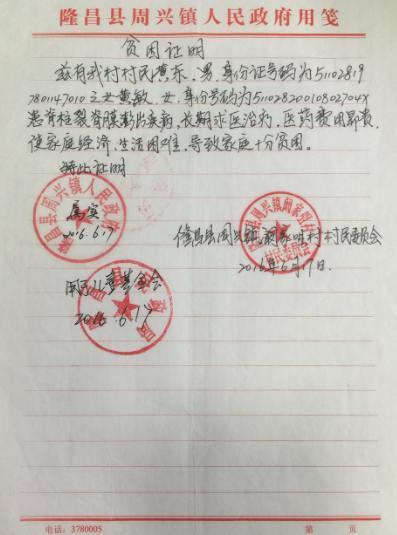 隆昌县周兴镇人民政府用笺
贫困证明
兹有我村村民黄东，男，身份证号码为51102819
7801147010之女黄敏，女，身份号码为51102820010802704X
患脊柱裂脊膜膨出疾病，长期求医治疗，医药费用昂贵，
使家庭经济、生活困难，导致家庭十分贫困。
特此证明
隆昌县周兴镇人民政府
属实
2016.6.17
隆昌县周兴镇
村村民委员会
2016年6月17日
村民委员会
隆昌县民政局
基金会
2016.6.17
电话：3780005
第 页